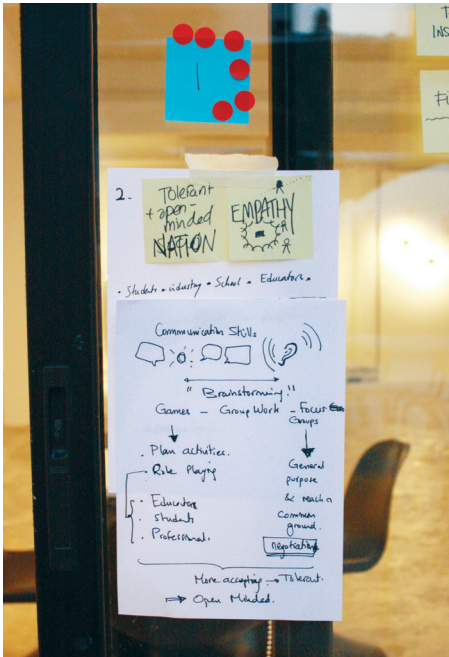 1
T
INS
Fi
2.
Tolerant
+ open-
minded
NATION
EMPATHY
• Students • industry • School • Educators •
Communication Skills
"Brainstorming!"
Games – Group Work – Focus
Groups
• Plan activities.
• Role Playing
• Educators
• Students
• Professional.
General
purpose
& reach a
common
ground.
negotiation
More accepting → Tolerant.
⇒ Open Minded.